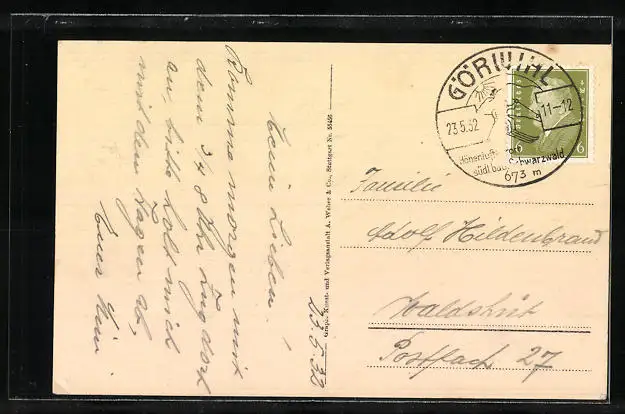 Meine Lieben!
Komme morgen mit
dem 3 48 Uhr Zug dort
an, bitte holt mich
mit dem Wagen ab,
Euer
23.5.32
Graph. Kunst- und Verlagsanstalt A. Weber & Co., Stuttgart Nr. 55456
GÖRWIHL
23.5.32
11-12
Höhenluft
südl bad. Schwarzwald
673 m
6
6
Familie
Adolf Hildenbrand
Waldshut
Postfach 27